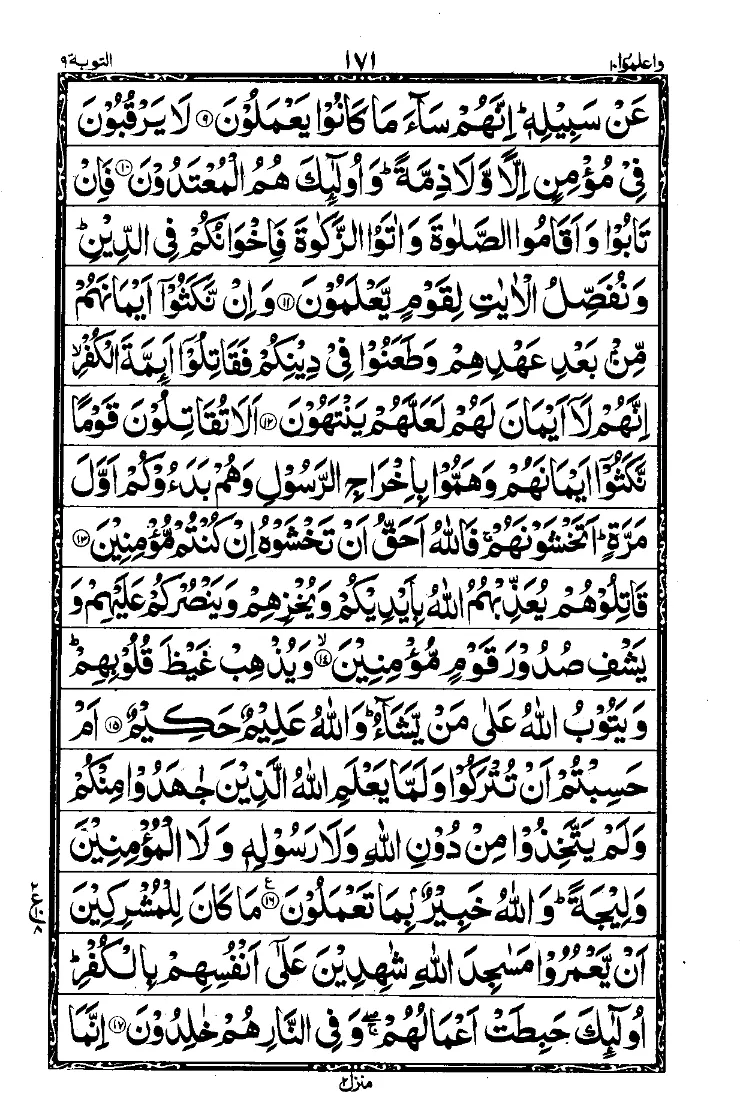 واعلموا ۱۰ ۱۷۱ التوبة ۹
عَنْ سَبِيْلِهٖ ؕ اِنَّهُمْ سَآءَ مَا كَانُوْا يَعْمَلُوْنَ ۹ لَا يَرْقُبُوْنَ
فِيْ مُؤْمِنٍ اِلًّا وَّلَا ذِمَّةً ؕ وَاُولٰٓئِكَ هُمُ الْمُعْتَدُوْنَ ۱۰ فَاِنْ
تَابُوْا وَاَقَامُوا الصَّلٰوةَ وَاٰتَوُا الزَّكٰوةَ فَاِخْوَانُكُمْ فِي الدِّيْنِ ؕ
وَنُفَصِّلُ الْاٰيٰتِ لِقَوْمٍ يَّعْلَمُوْنَ ۱۱ وَاِنْ نَّكَثُوْۤا اَيْمَانَهُمْ
مِّنْۢ بَعْدِ عَهْدِهِمْ وَطَعَنُوْا فِيْ دِيْنِكُمْ فَقَاتِلُوْۤا اَئِمَّةَ الْكُفْرِ ۙ
اِنَّهُمْ لَاۤ اَيْمَانَ لَهُمْ لَعَلَّهُمْ يَنْتَهُوْنَ ۱۲ اَلَا تُقَاتِلُوْنَ قَوْمًا
نَّكَثُوْۤا اَيْمَانَهُمْ وَهَمُّوْا بِاِخْرَاجِ الرَّسُوْلِ وَهُمْ بَدَءُوْكُمْ اَوَّلَ
مَرَّةٍ ؕ اَتَخْشَوْنَهُمْ ۚ فَاللّٰهُ اَحَقُّ اَنْ تَخْشَوْهُ اِنْ كُنْتُمْ مُّؤْمِنِيْنَ ۱۳
قَاتِلُوْهُمْ يُعَذِّبْهُمُ اللّٰهُ بِاَيْدِيْكُمْ وَيُخْزِهِمْ وَيَنْصُرْكُمْ عَلَيْهِمْ وَ
يَشْفِ صُدُوْرَ قَوْمٍ مُّؤْمِنِيْنَ ۙ ۱۴ وَيُذْهِبْ غَيْظَ قُلُوْبِهِمْ ؕ
وَيَتُوْبُ اللّٰهُ عَلٰى مَنْ يَّشَآءُ ؕ وَاللّٰهُ عَلِيْمٌ حَكِيْمٌ ۱۵ اَمْ
حَسِبْتُمْ اَنْ تُتْرَكُوْا وَلَمَّا يَعْلَمِ اللّٰهُ الَّذِيْنَ جٰهَدُوْا مِنْكُمْ
وَلَمْ يَتَّخِذُوْا مِنْ دُوْنِ اللّٰهِ وَلَا رَسُوْلِهٖ وَلَا الْمُؤْمِنِيْنَ
وَلِيْجَةً ؕ وَاللّٰهُ خَبِيْرٌۢ بِمَا تَعْمَلُوْنَ ۱۶ ع مَا كَانَ لِلْمُشْرِكِيْنَ
اَنْ يَّعْمُرُوْا مَسٰجِدَ اللّٰهِ شٰهِدِيْنَ عَلٰۤى اَنْفُسِهِمْ بِالْكُفْرِ ؕ
اُولٰٓئِكَ حَبِطَتْ اَعْمَالُهُمْ ۖۚ وَفِي النَّارِ هُمْ خٰلِدُوْنَ ۱۷ اِنَّمَا
منزل ۲